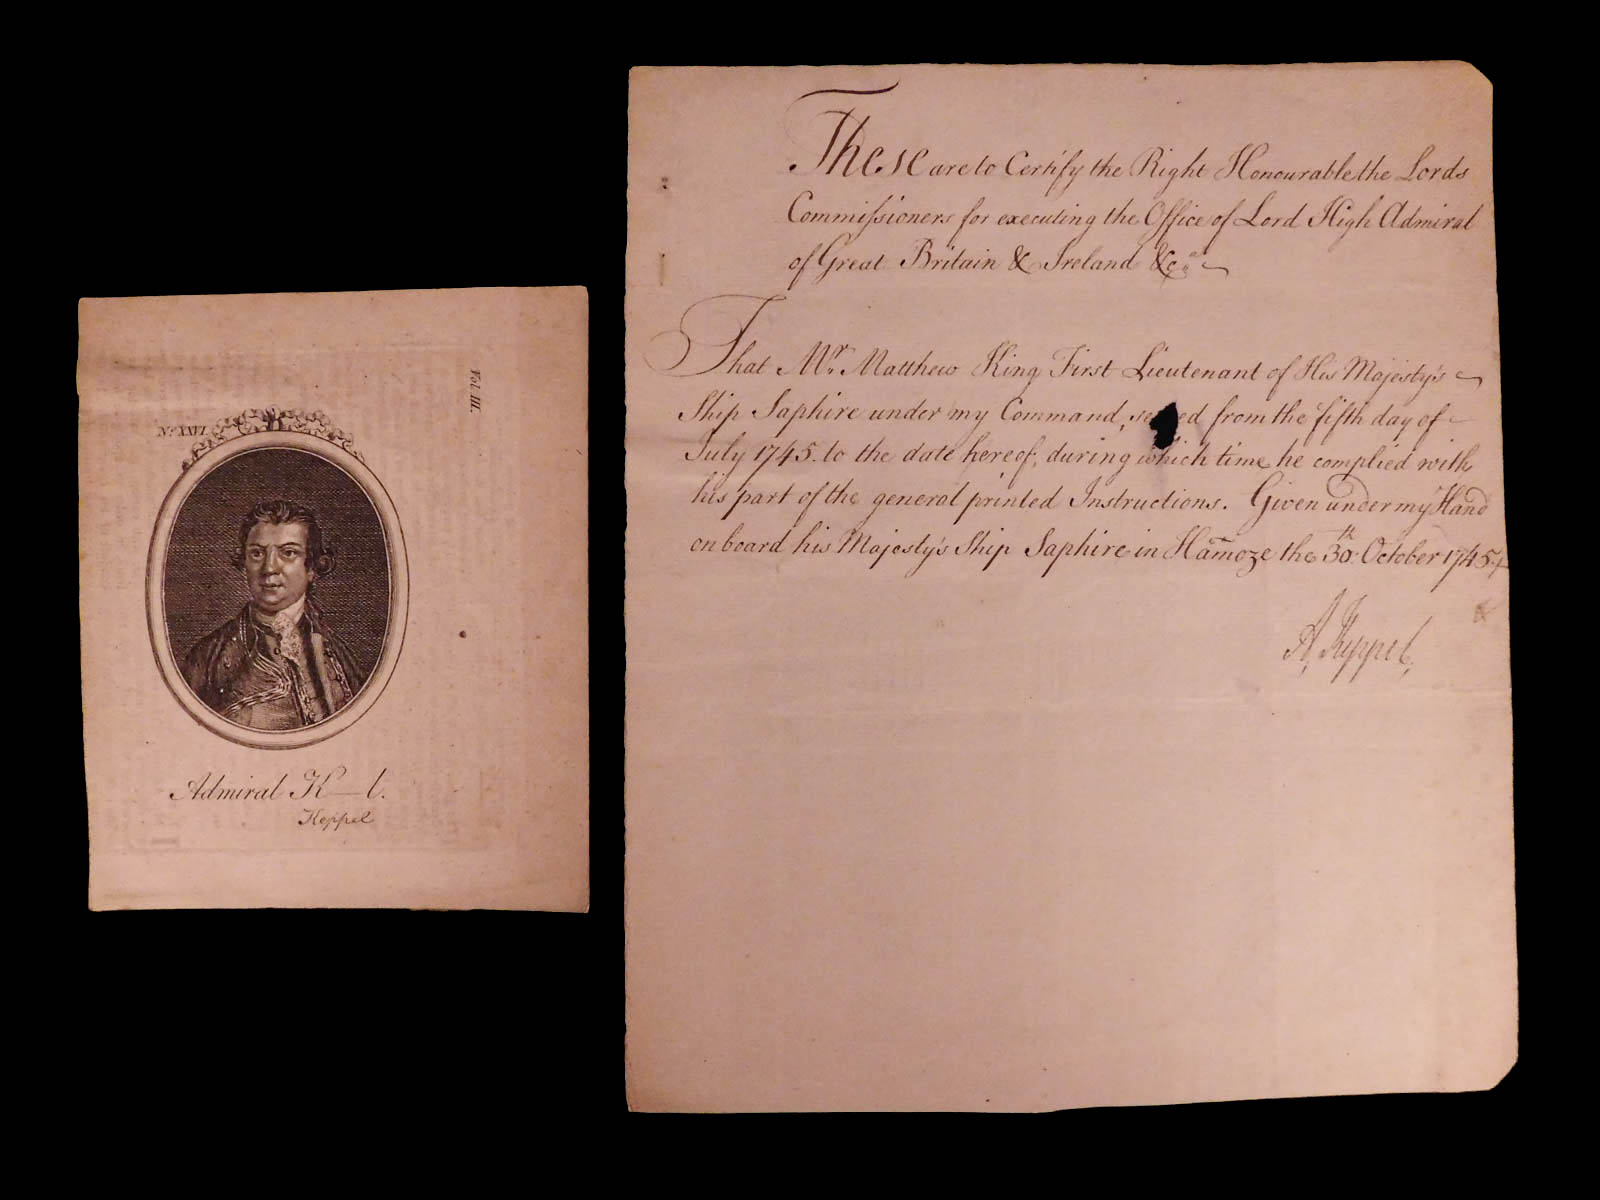 Vol. III.
Admiral K—l.
Keppel
These are to Certify the Right Honourable the Lords
Commiſsioners for executing the Office of Lord High Admiral
of Great Britain & Ireland &c.a
That Mr. Matthew King First Lieutenant of His Majesty's
Ship Saphire under my Command, from the fifth day of
July 1745. to the date hereof, during which time he complied with
his part of the general printed Instructions. Given under my Hand
on board his Majesty's Ship Saphire in Hamoze the 30th October 1745
A, Keppel,